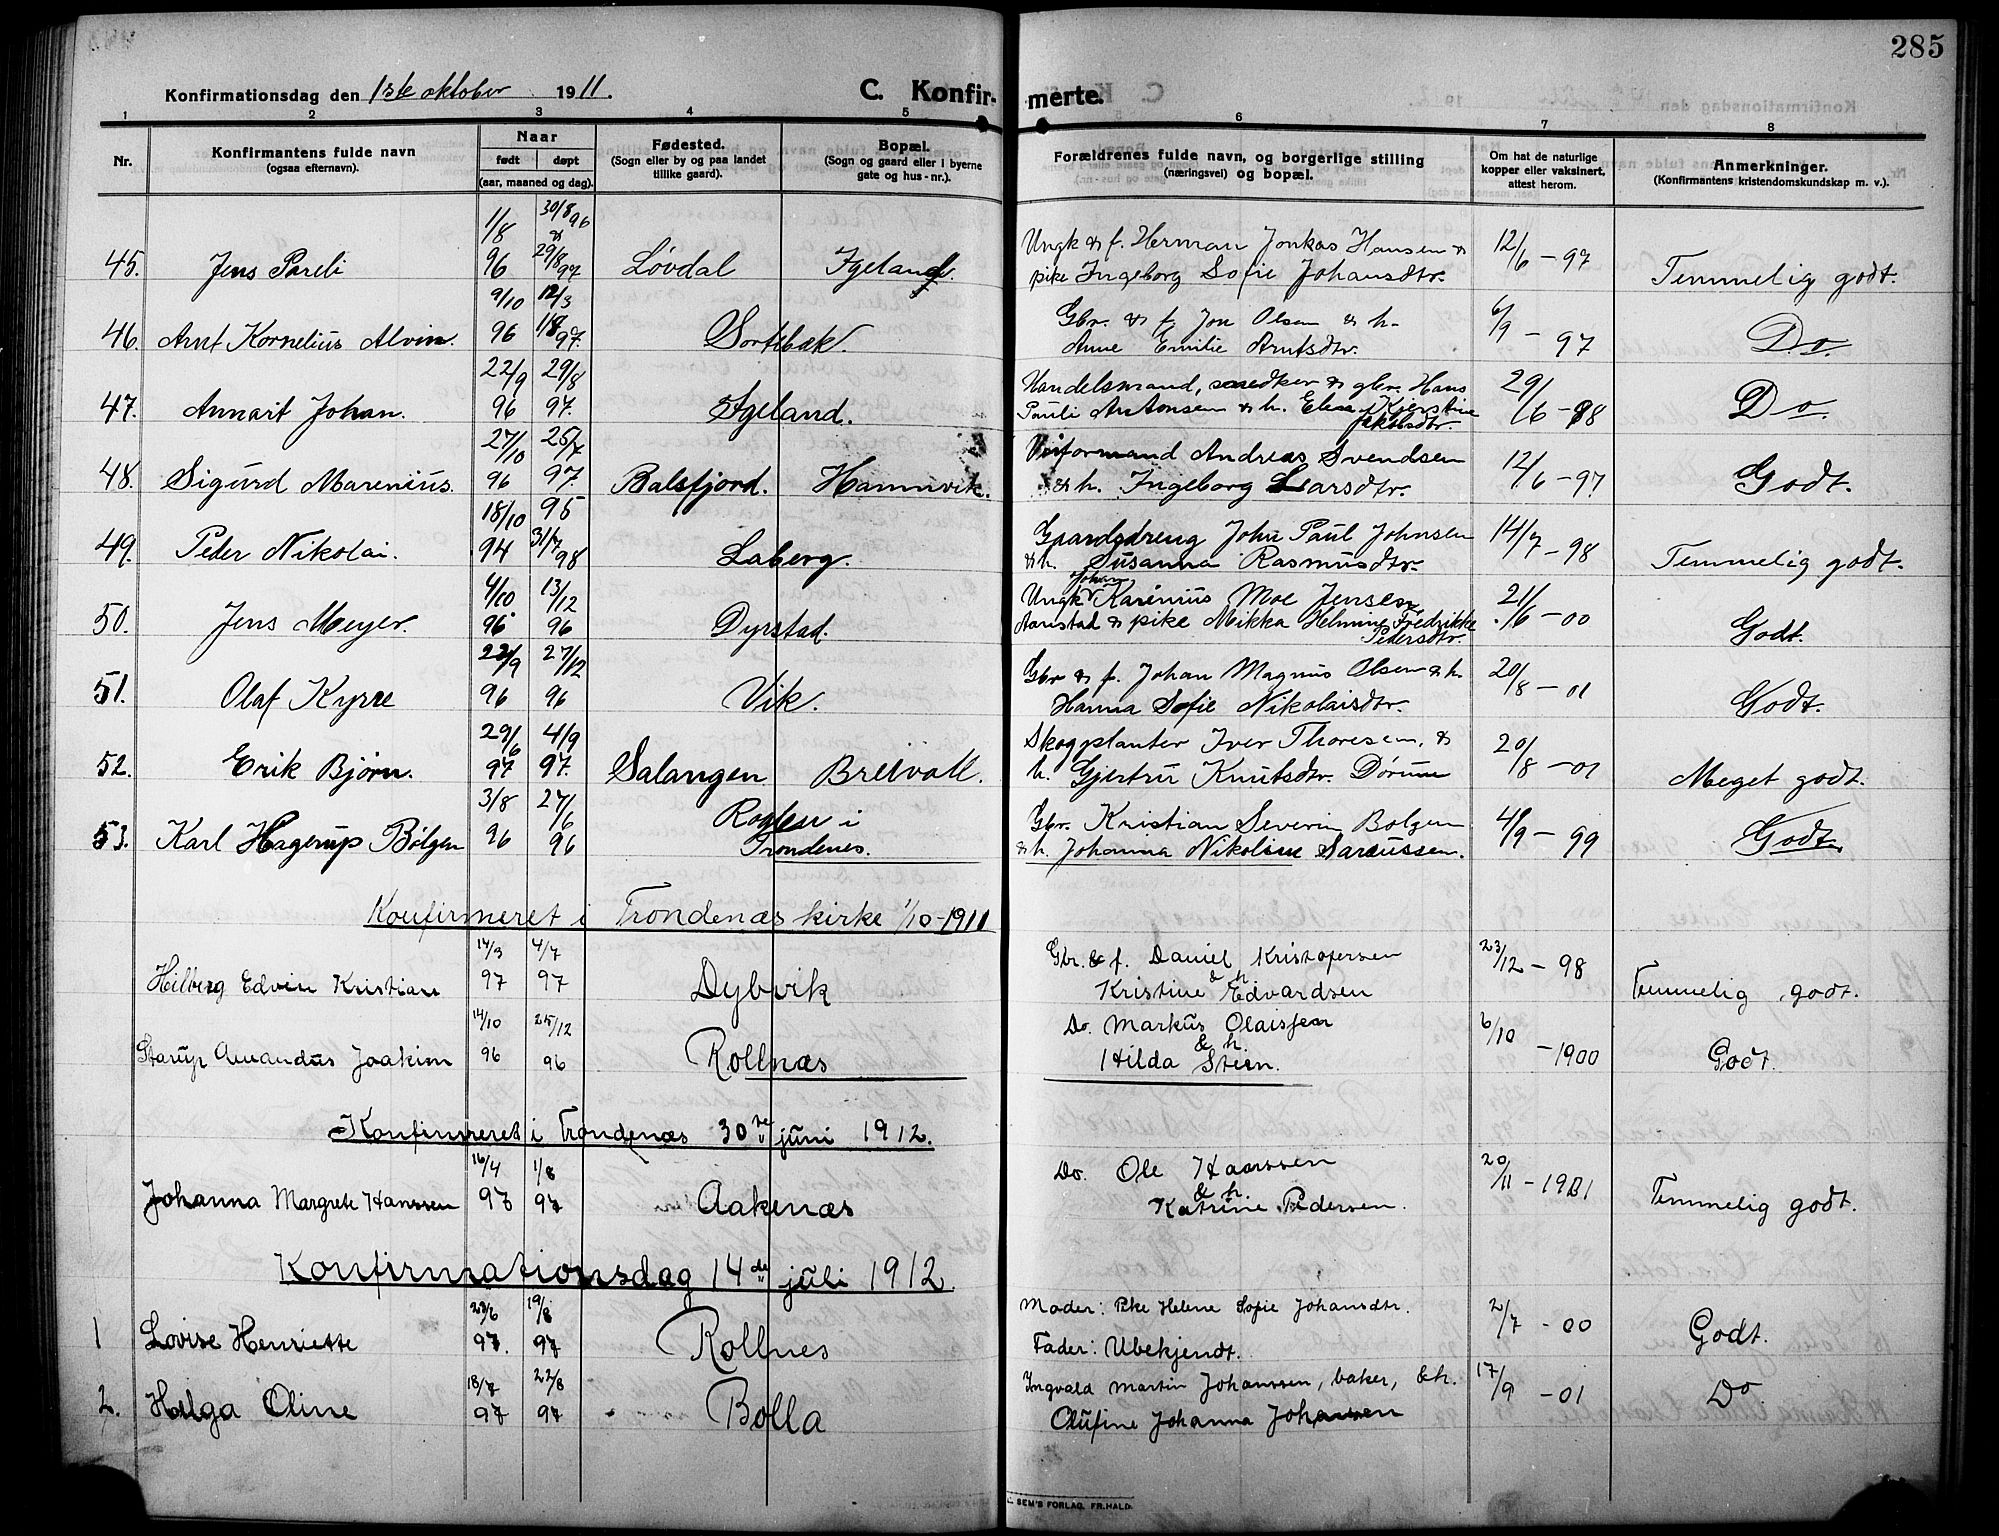 285
Konfirmationsdag den 1ste oktober 1911.
C. Konfirmerte.
1 2 3 4 5 6 7 8
Nr.
Konfirmantens fulde navn
(ogsaa efternavn).
Naar
født døpt
(aar, maaned og dag).
Fødested.
(Sogn eller by og paa landet
tillike gaard).
Bopæl.
(Sogn og gaard eller i byerne
gate og hus-nr.).
Forældrenes fulde navn, og borgerlige stilling
(næringsvei) og bopæl.
Om hat de naturlige
kopper eller vaksinert,
attest herom.
Anmerkninger.
(Konfirmantens kristendomskundskap m. v.).
1/8 30/8 96 & Ungk & f. Herman Jonkas Hansen & 12/6 - 97
45. Jens Pareli 96 29/8 97 Løvdal Igeland. pike Ingeborg Sofie Johansdtr. Temmelig godt.
9/10 12/3 Gbr. & f. Jon Olsen & h. 6/9 - 97
46. Arnt Kornelius Alvin. 96 1/8 97. Sortebæk. Anne Emilie Arntsdtr. Do.
22/9 29/8 Handelsmand, snedker & gbr. Hans 29/6 - 98
47. Annart Johan. 96 97. Igeland. Pauli Antonsen & h. Elen Kjerstine Jakobsdtr. Do.
27/10 25/7 Veiformand Andreas Svendsen 12/6 - 97
48. Sigurd Marenius. 96 97. Balsfjord. Hamnvik. & h. Ingeborg Larsdtr. Godt.
18/10 95 Gaardsdreng John Paul Johnsen 14/7 - 98
49. Peder Nikolai. 94 31/7 98 Laberg. & h. Susanna Rasmusdtr. Temmelig godt.
4/10 13/12 Ungk Johan Karenius Moe Jensen, 21/6 - 00
50. Jens Meyer. 96 96 Dyrstad. Aanstad & pike Mikka Helmine Fredrikke Pedersdtr. Godt.
23/9 27/12 Gbr & f. Johan Magnus Olsen & h. 20/8 - 01
51. Olaf Kyrre 96 96 Vik. Hanna Sofie Nikolaisdtr. Godt.
29/6 4/9 Skogplanter Iver Thoresen, & 20/8 - 01
52. Erik Bjørn. 97 97. Salangen Breivoll. h. Gjertru Knutsdtr. Dørum Meget godt.
3/8 27/6 Rogten i Gbr. Kristian Severin Bolgen 4/9 - 99
53. Karl Hagerup Bølgen 96 96 Trondenes. & h. Johanna Nikoline Saraussen. Godt.
Konfirmeret i Trondenæs kirke 1/10-1911
14/3 4/7 Gbr. & f. Daniel Kristofersen 23/12 - 98
Hilberg Edvin Kristian 97 97 Dybvik & h. Kristine Edvardsen Temmelig godt.
14/10 25/12 Do. Markus Olaissen 6/10 - 1900
Starup Amandus Joakim 96 96 Rollnæs & h. Hilda Stien. Godt.
Konfirmeret i Trondenæs 30te juni 1912.
16/4 1/8 Do. Ole Hanssen 20/11 - 1901
Johanna Margrete Hanssen 97 97 Aakenæs & h. Katrine Pedersen. Temmelig godt.
Konfirmationsdag 14de juli 1912.
23/6 19/8 Moder: Pike Helene Sofie Johansdtr. 2/7 - 00
1 Lovise Henriette 97. 97 Rollnes Fader: Ubekjendt. Godt.
18/7 22/8 Ingvald Martin Johanssen, baker, & h. 17/9 - 01
2. Helga Oline 97 97 Bolla Olufine Johanna Johansen Do
SEM'S FORLAG. FR.HALD.